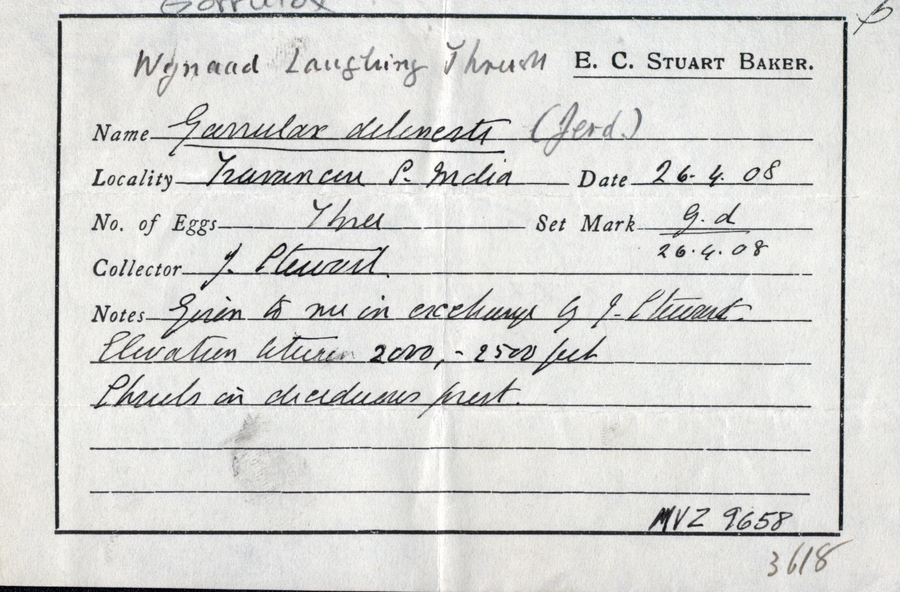 Garrulax
Wynaad Laughing Thrush E. C. STUART BAKER.
Name Garrulax delesserti (Jerd.)
Locality Travancore S. India Date 26.4.08
No. of Eggs Three Set Mark G.d
26.4.08
Collector J. Stewart.
Notes Given to me in exchange by J. Stewart.
Elevation between 2000,-2500 feet
Shrubs in deciduous forest.
MVZ 9658
3618